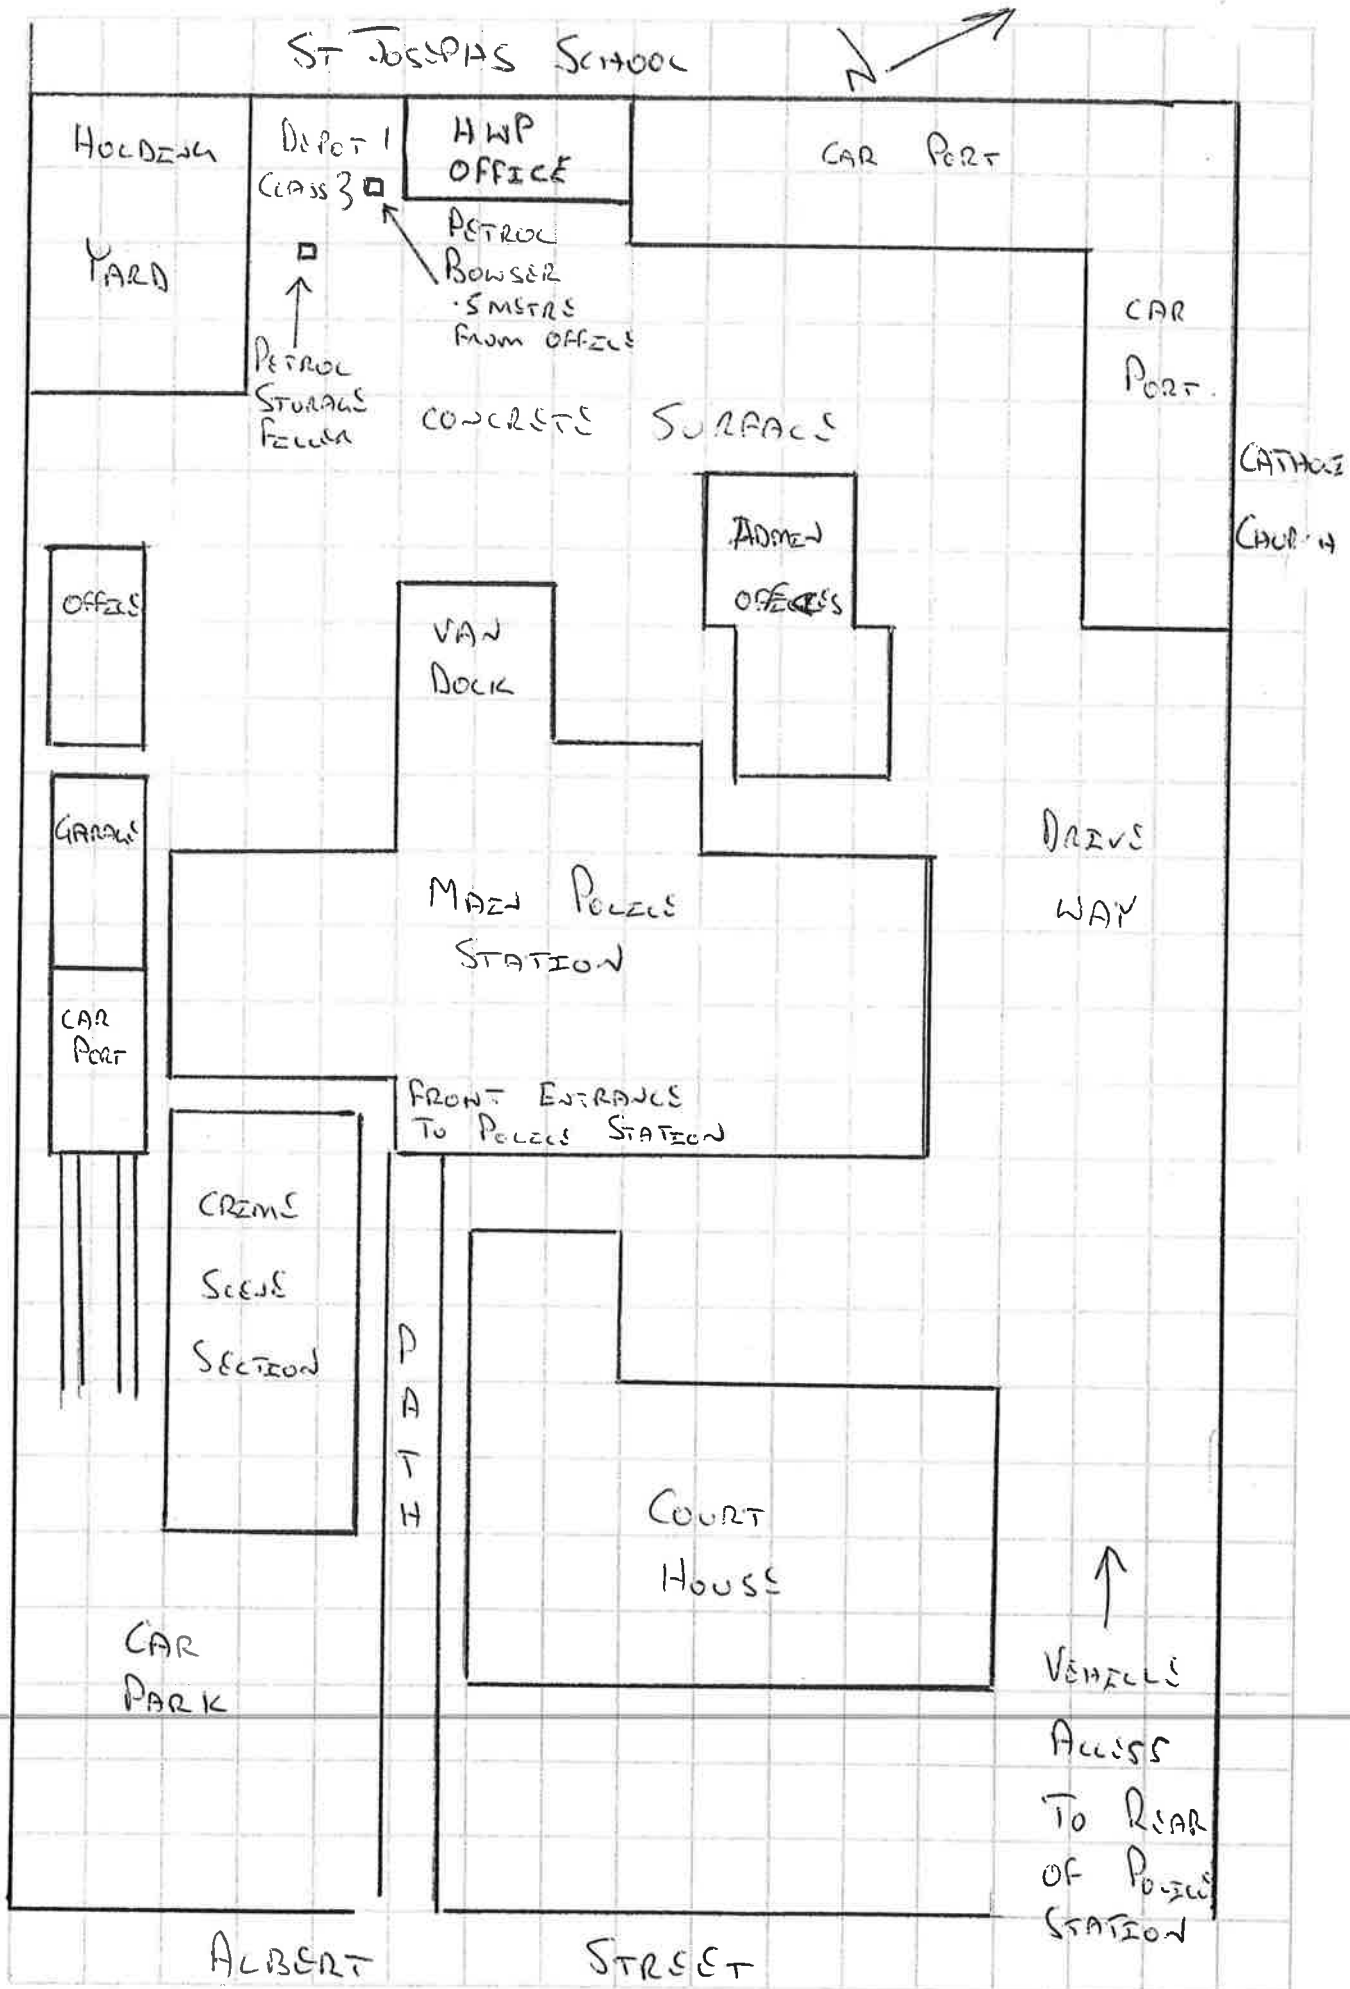 ST JOSEPHS SCHOOL
N
HOLDING
YARD
DEPOT 1
CLASS 3
HWP
OFFICE
CAR PORT
PETROL
BOWSER
.5 METRE
FROM OFFICE
PETROL
STORAGE
FILLER
CAR
PORT.
CONCRETE SURFACE
CATHOLI
CHURCH
ADMIN
OFFICES
OFFICE
VAN
DOCK
GARAGE
DRIVE
WAY
MAIN POLICE
STATION
CAR
PORT
FRONT ENTRANCE
TO POLICE STATION
CRIME
SCENE
SECTION
PATH
COURT
HOUSE
CAR
PARK
VEHICLE
ACCESS
TO REAR
OF POLICE
STATION
ALBERT STREET